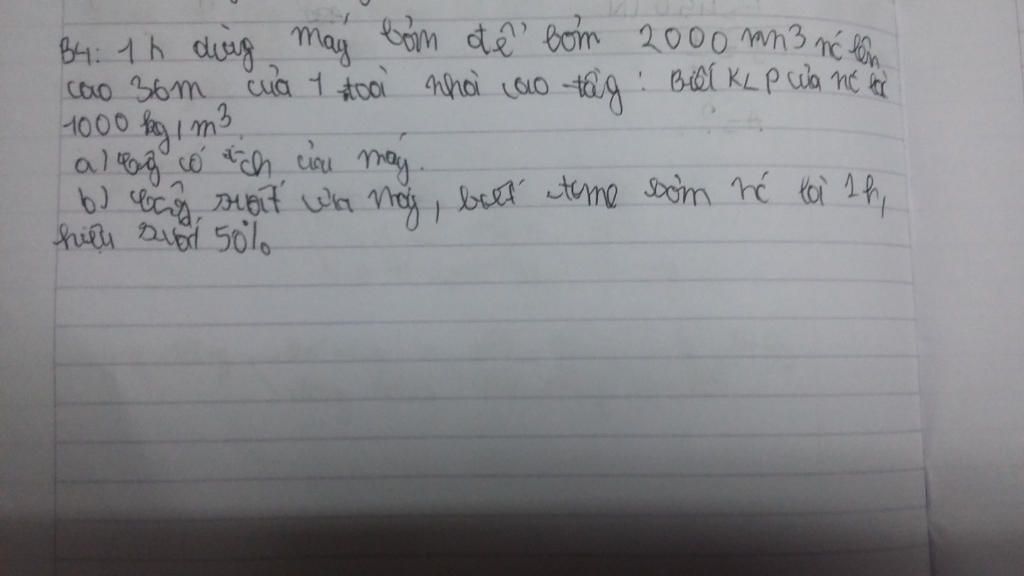 B4: 1h dùng máy bơm để bơm 2000 mn3 nć lên
cao 36m của 1 toà nhà cao tầg : Biết KLP của nć là
1000 kg/m3
a) côg có ích của máy.
b) côg suất của máy, biết bơm nć là 1h,
hiệu suất 50%